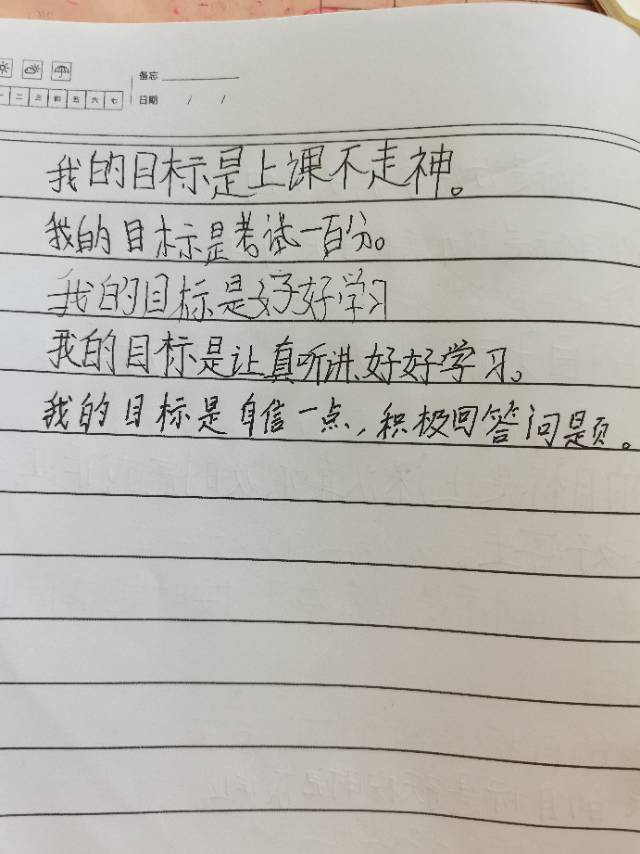 备忘
一 二 三 四 五 六 七 日期 / /
我的目标是上课不走神。
我的目标是考试一百分。
我的目标是好好学习
我的目标是让真听讲、好好学习。
我的目标是自信一点,积极回答问题。